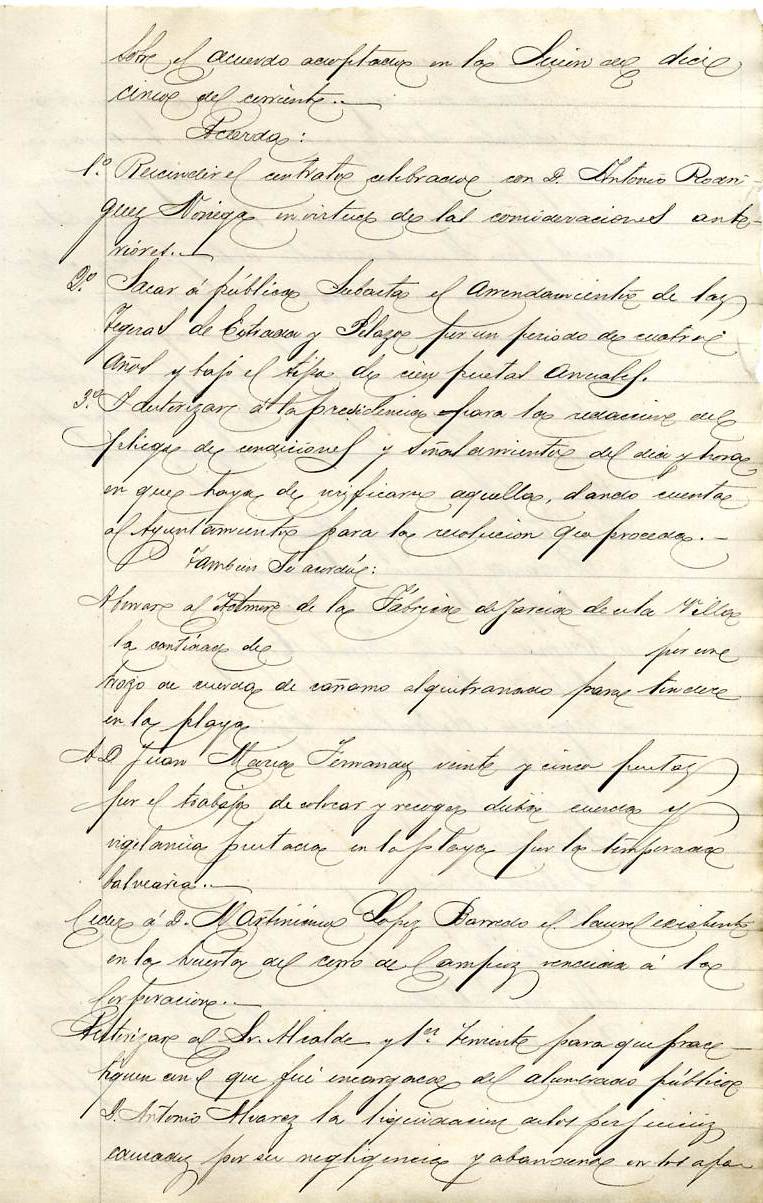 sobre el acuerdo adoptado en la Sesion de diez
cinco del corriente.
Acuerda:
1.º Rescindir el contrato celebrado con D. Antonio Rodri-
guez Noriega en virtud de las consideraciones ante-
riores.
2.º Sacar á pública Subasta el arrendamiento de las
Tejeras de Estrada y Pelazo por un periodo de cuatro
Años y bajo el tipo de cien pesetas Anuales.
3.º Autorizar á la presidencia para la redaccion del
pliego de condiciones y señalamiento del dia y hora
en que haya de verificarse aquella, dando cuenta
al Ayuntamiento para la resolucion que proceda.
Tambien Se acordó:
Abonar al de la Fábrica de Jarcia de esta Villa
la cantidad de por un
trozo de cuerda de cáñamo alquitranado para tender
en la playa.
A D Juan Maria Fernandez veinte y cinco pesetas
por el trabajo de colocar y recoger dicha cuerda y
vigilancia prestada en la playa por la temporada
balnearia.
Ceder á D. Maximino Lopez Barredo el laurel existente
en la huerta del cerro de Campoz vencida á la
Corporacion.
Autorizar al Sr. Alcalde y 1.er Teniente para que prac-
tiquen con el que fué encargado del alumbrado público
D. Antonio Alvarez la liquidacion de los perjuicios
causados por su negligencia y abandono en los apa-